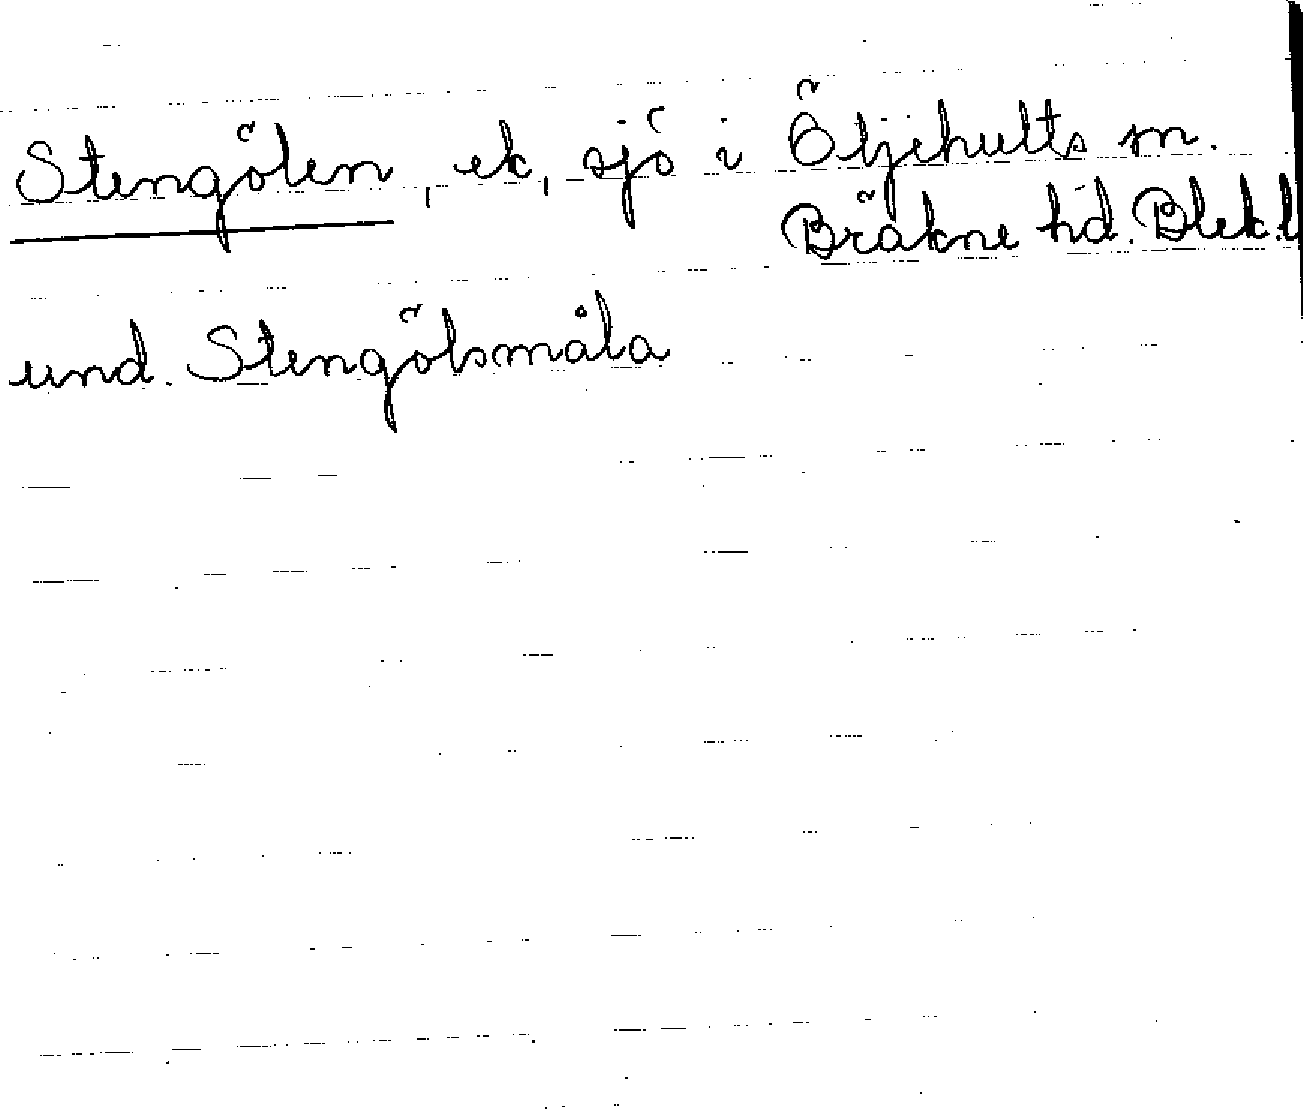 Stengölen, ek, sjö i Öljehults sn.
Bräkne hd. Blek.l
und. Stengölsmåla